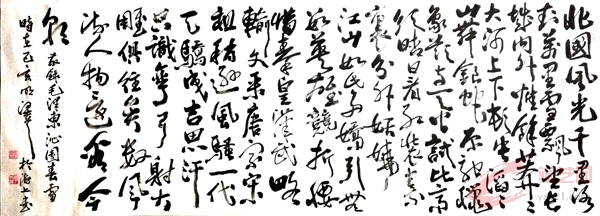 北國風光千里冰
封萬里雪飄望長
城內外惟餘莽莽
大河上下頓失滔滔
山舞銀蛇原馳蠟
象欲與天公試比高
須晴日看紅裝素
裹分外妖嬈
江山如此多嬌引無
數英雄競折腰
惜秦皇漢武略
輸文采唐宗宋
祖稍遜風騷一代
天驕成吉思汗
只識彎弓射大
雕俱往矣數風
流人物還看今
朝 右錄毛澤東沁園春雪
時在己亥